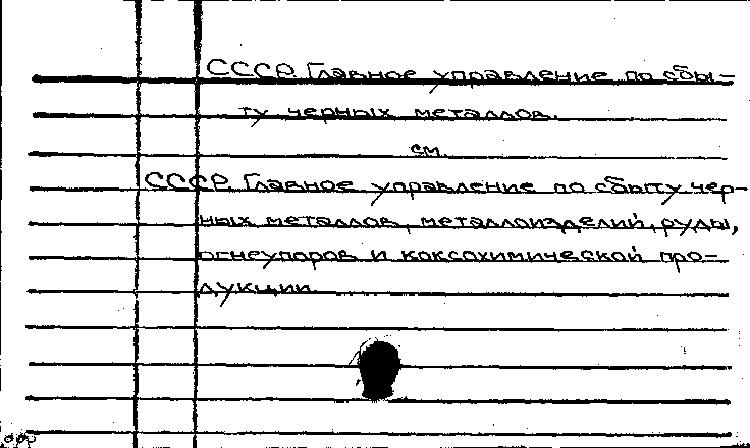 СССР. Главное управление по сбы-
ту черных металлов.
см.
СССР. Главное управление по сбыту чер-
ных металлов, металлоизделий, руды,
огнеупоров и коксохимической про-
дукции.